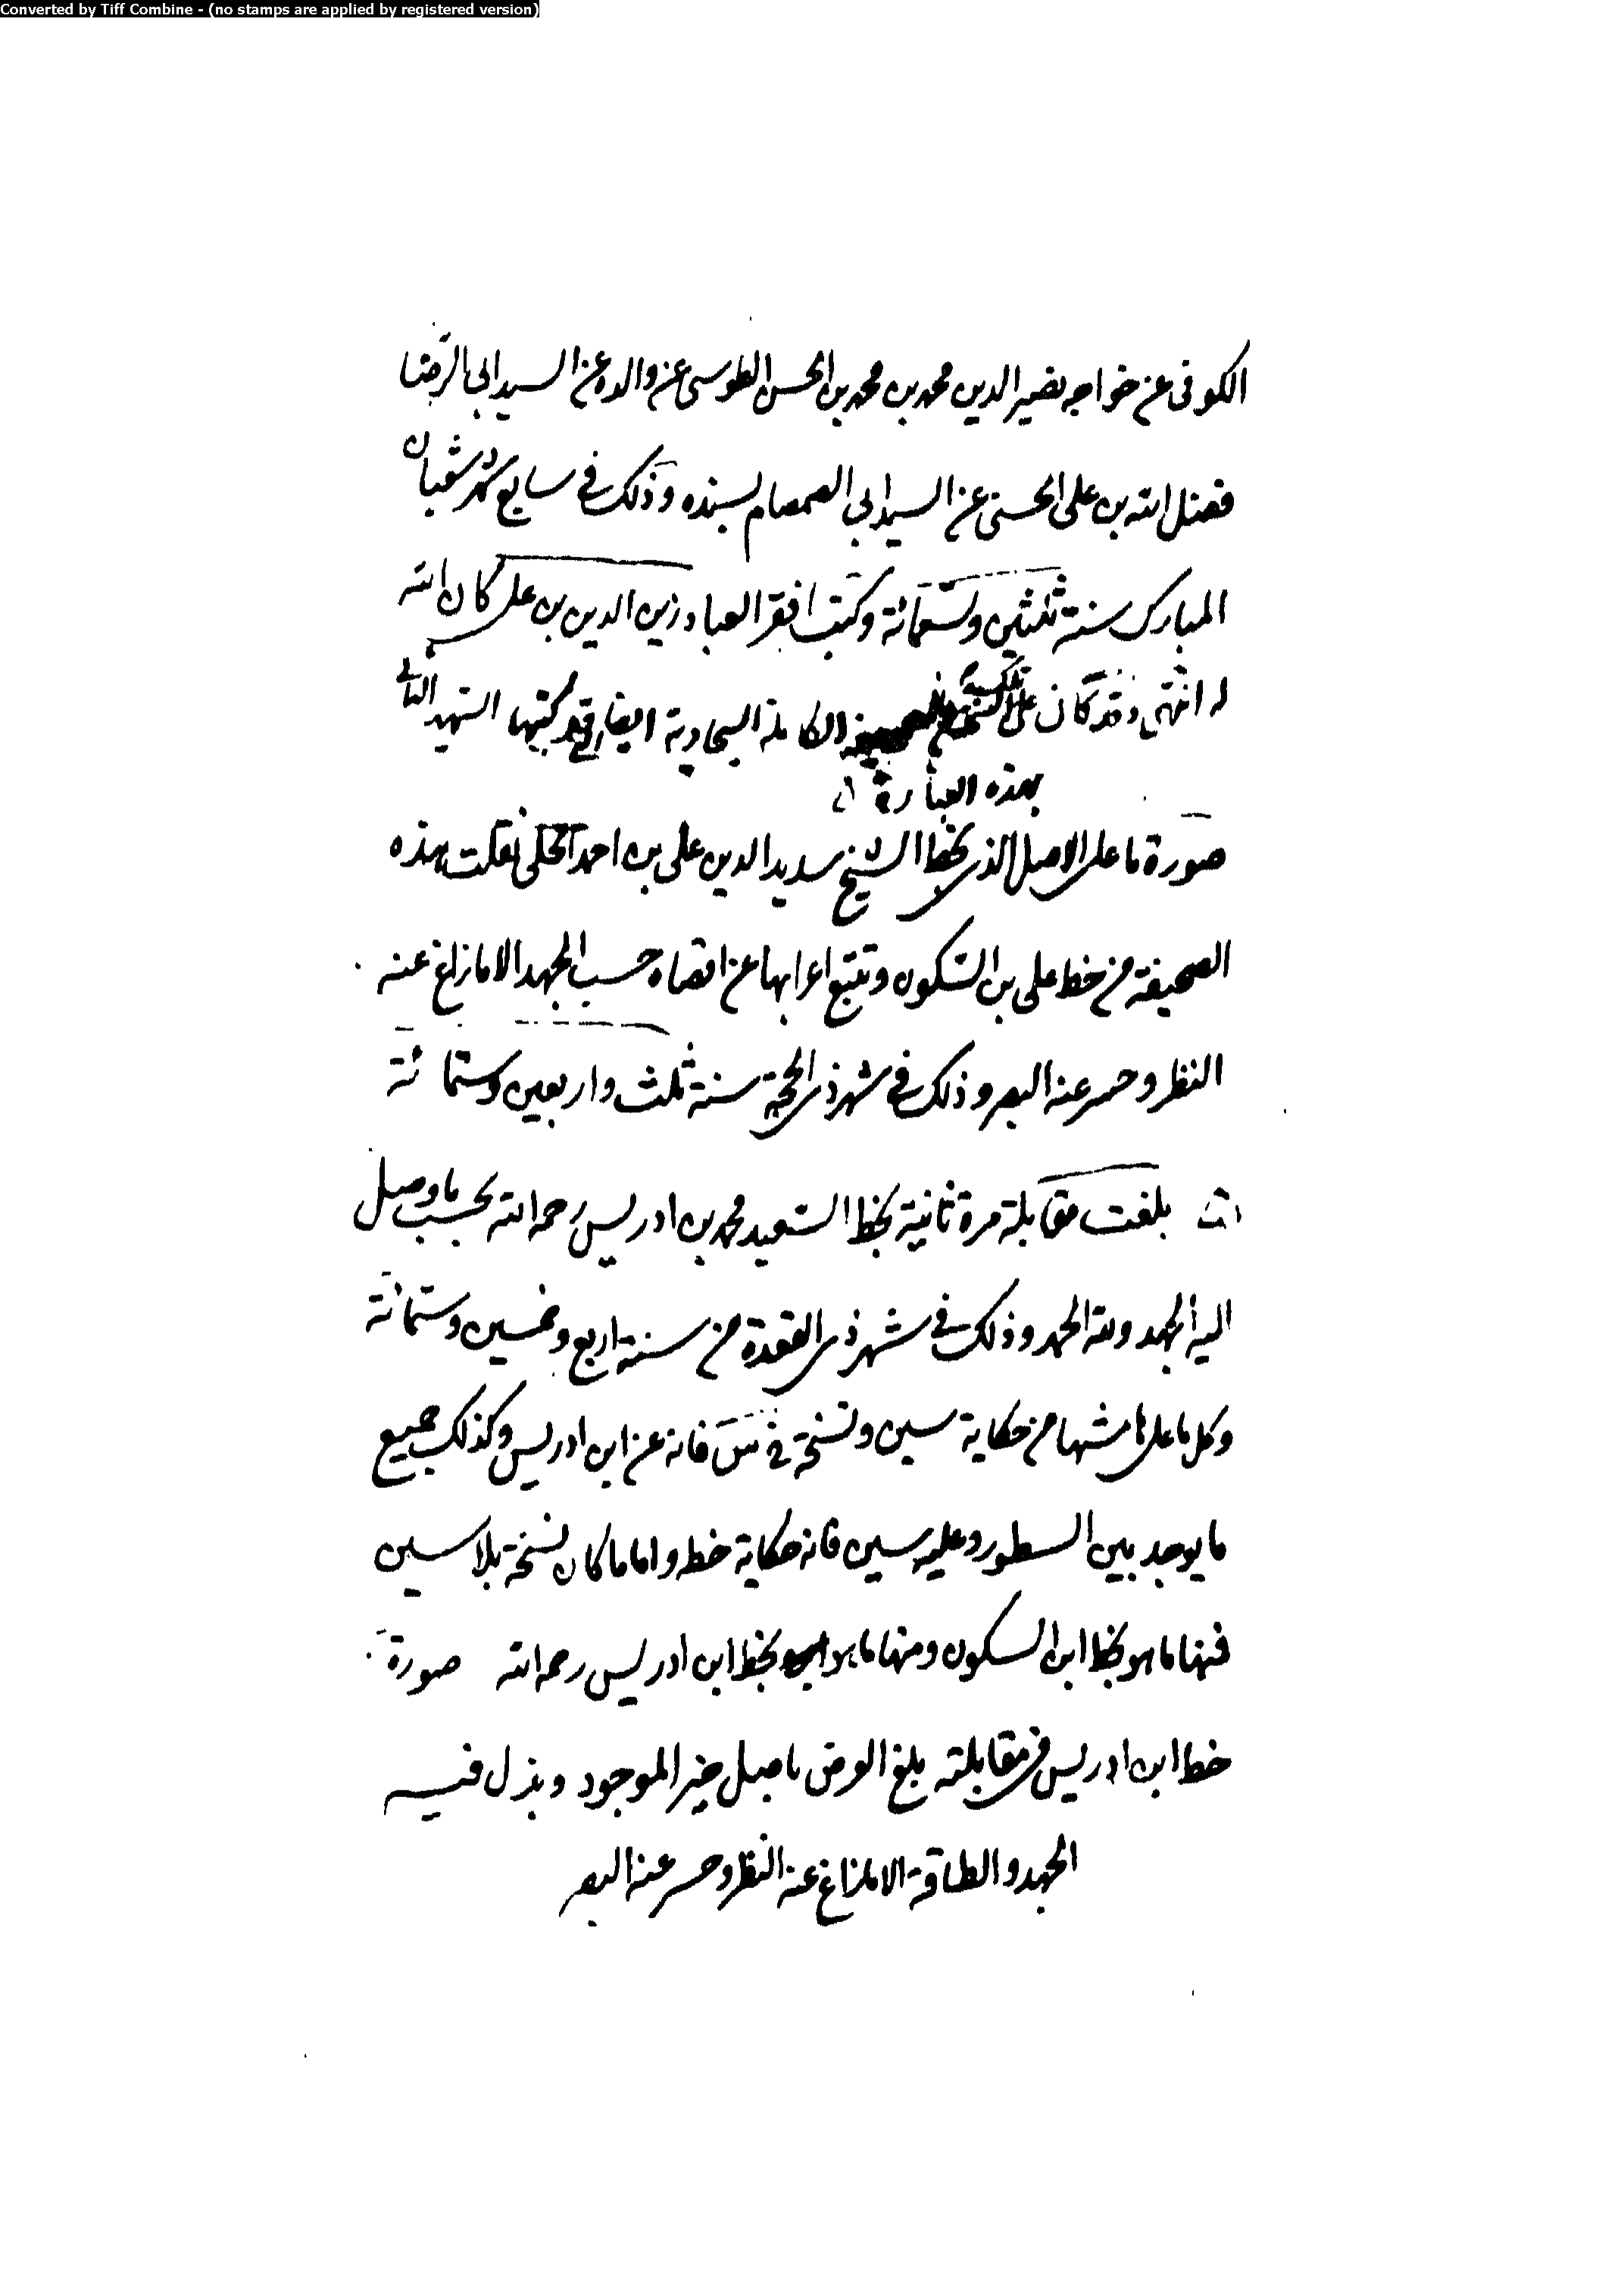 Converted by Tiff Combine - (no stamps are applied by registered version)
الكوفى عن خواجه نصير الدين محمد بن محمد بن الحسن الطوسى عن والده عن السيد ابى الرضا
فضل الله بن على الحسنى عن السيد ابى الصمصام بسنده وذلك فى سابع شهر شعبان
المبارك سنة ثلثين وتسعمائة وكتب افقر العباد زين الدين بن على كان الله
له انتهى وقد كان على تلك النسخة من الصحيفة الكاملة السجادية ايضا قد كتبها الشهيد الثانى
بهذه العبارة
صورة ما على الاصل الذى بخط الشيخ سديد الدين على بن احمد الحلى نقلت هذه
الصحيفة من خط على بن السكون وتتبع اعرابها عن اقصاه حسب الجهد الا ما زاغ عنه
النظر وحسر عنه البصر وذلك فى شهر ذى الحجة سنة ثلث واربعين وستمائة
بلغت مقابلة مرة ثانية بخط السعيد محمد بن ادريس رحمه الله بحسب ما وصل
اليه الجهد ولله الحمد وذلك فى شهر ذى القعدة من سنة اربع وخمسين وستمائة
وكل ما على هامشها من حكاية سين ونسخة فى س فانه عن ابن ادريس وكذلك جميع
ما يوجد بين السطور وعليه سين فانه حكاية خطه واما ما كان نسخة بلا سين
فمنها ما هو بخط ابن السكون ومنها ما هو بخط ابن ادريس رحمه الله صورة
خط ابن ادريس فى مقابلته بلغ العرض باصل خير الموجود وبذل فيه
الجهد والطاقة الا ما زاغ عنه النظر وحسر عنه البصر